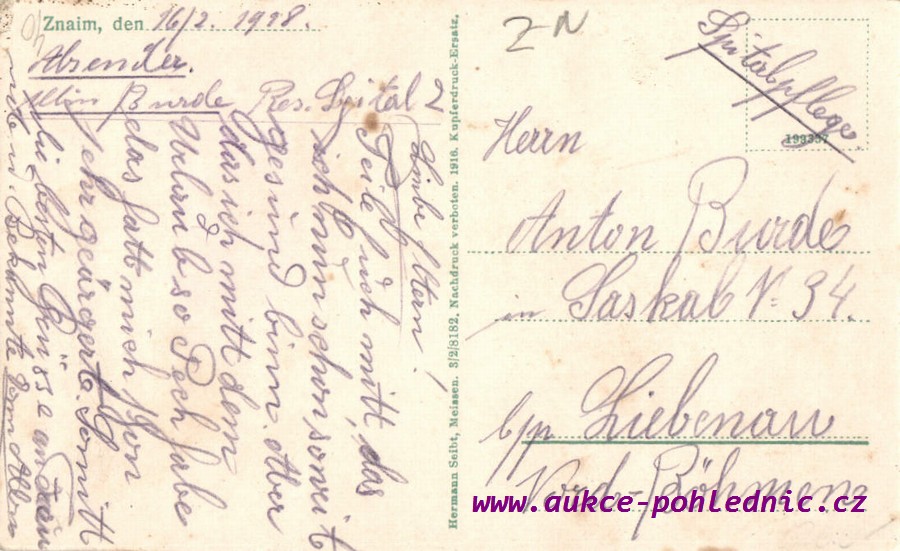 Znaim, den 16/2. 1918.
Absender.
Albin Burde Res. Spital 2
Liebe Eltern!
Teile Euch mitt, das
ich nun schon soweit
gesund binn. Aber
das ich mitt dem
Urlaub so Pech habe
das hatt mich schon
sehr geärgert. Somitt
die besten Grüsse an Freun
Albin
Hermann Seibt, Meissen. 3/2/8182, Nachdruck verboten. 1916. Kupferdruck-Ersatz.
Z-N
Spitalpflege
Herrn
Anton Burde
in Saskal N- 34.
b/n Liebenau
Nord-Böhmen
www.aukce-pohlednic.cz